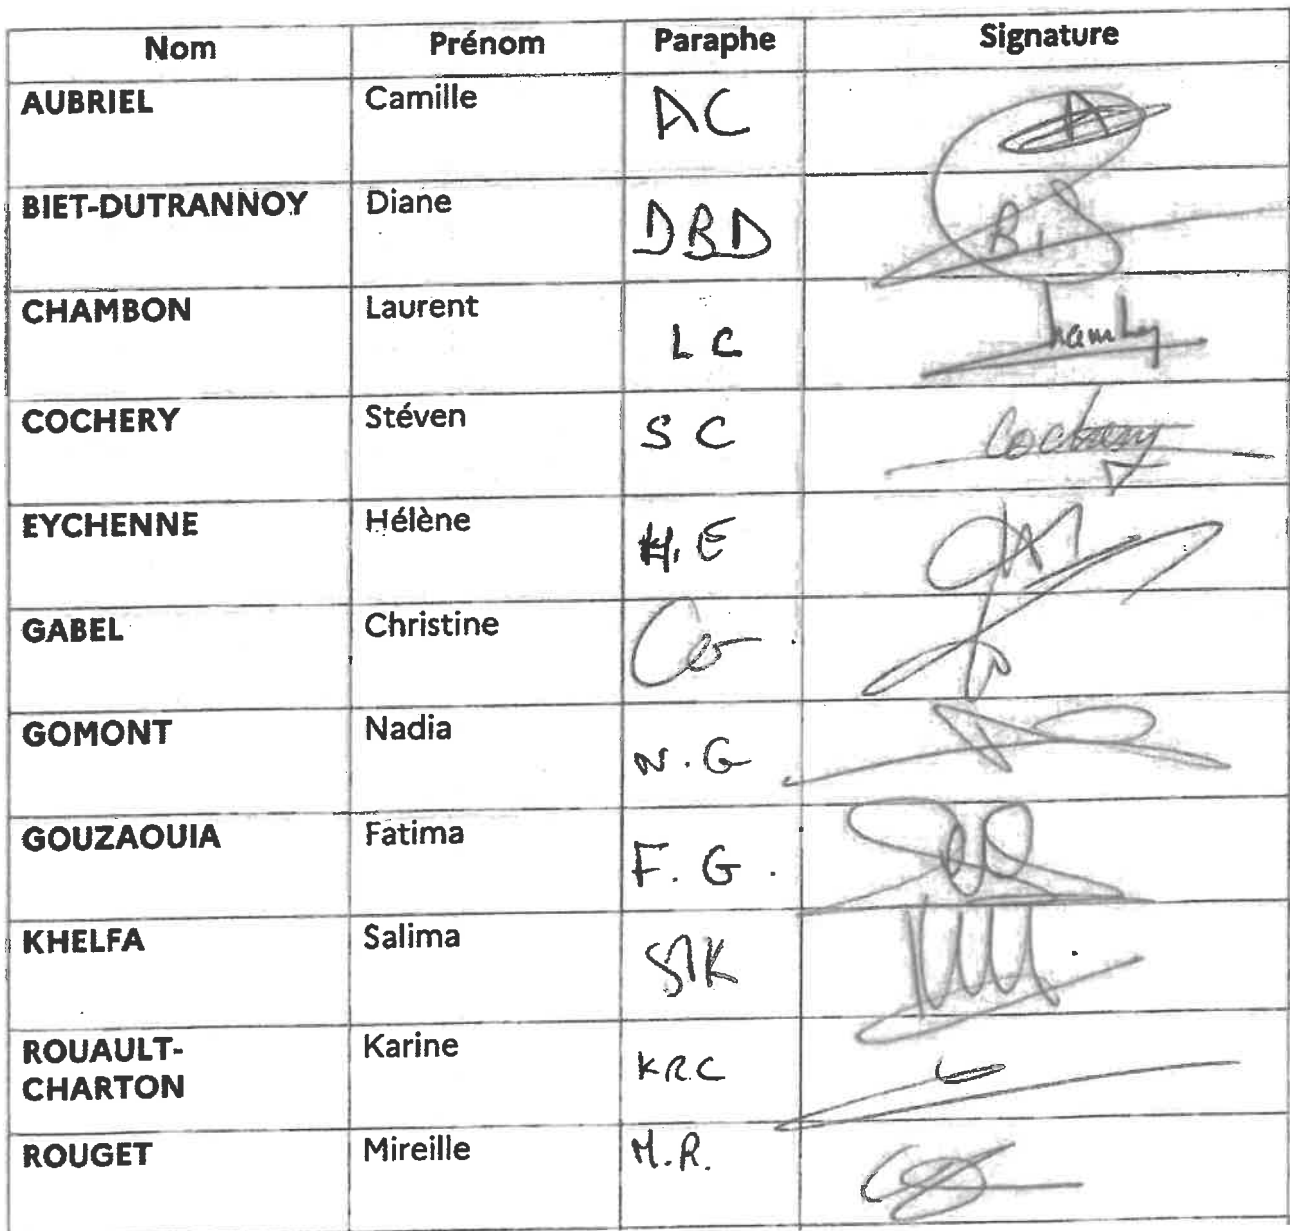 Nom Prénom Paraphe Signature
AUBRIEL Camille AC A
BIET-DUTRANNOY Diane DBD
CHAMBON Laurent LC
COCHERY Stéven SC Cochery
EYCHENNE Hélène H.E
GABEL Christine
GOMONT Nadia N.G
GOUZAOUIA Fatima F.G.
KHELFA Salima SK
ROUAULT- Karine KRC
CHARTON
ROUGET Mireille M.R.